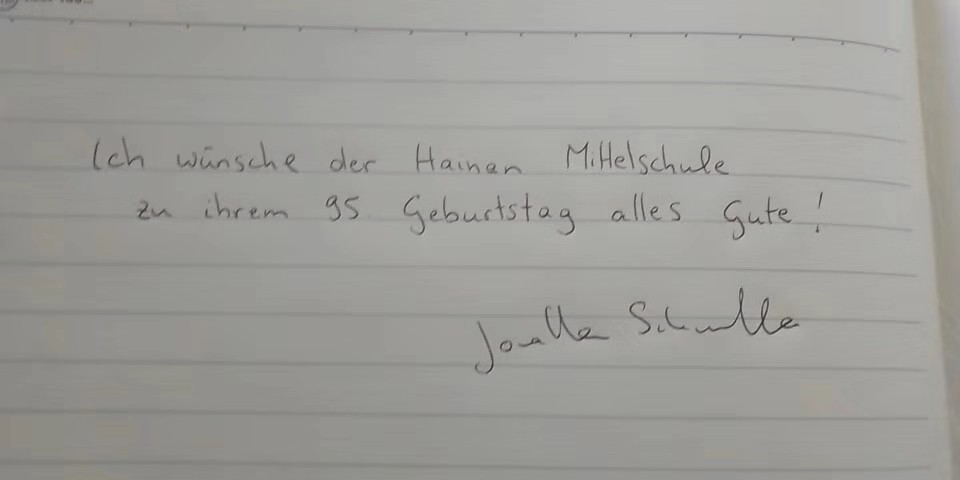 Ich wünsche der Hainan Mittelschule
zu ihrem 95 Geburtstag alles Gute!